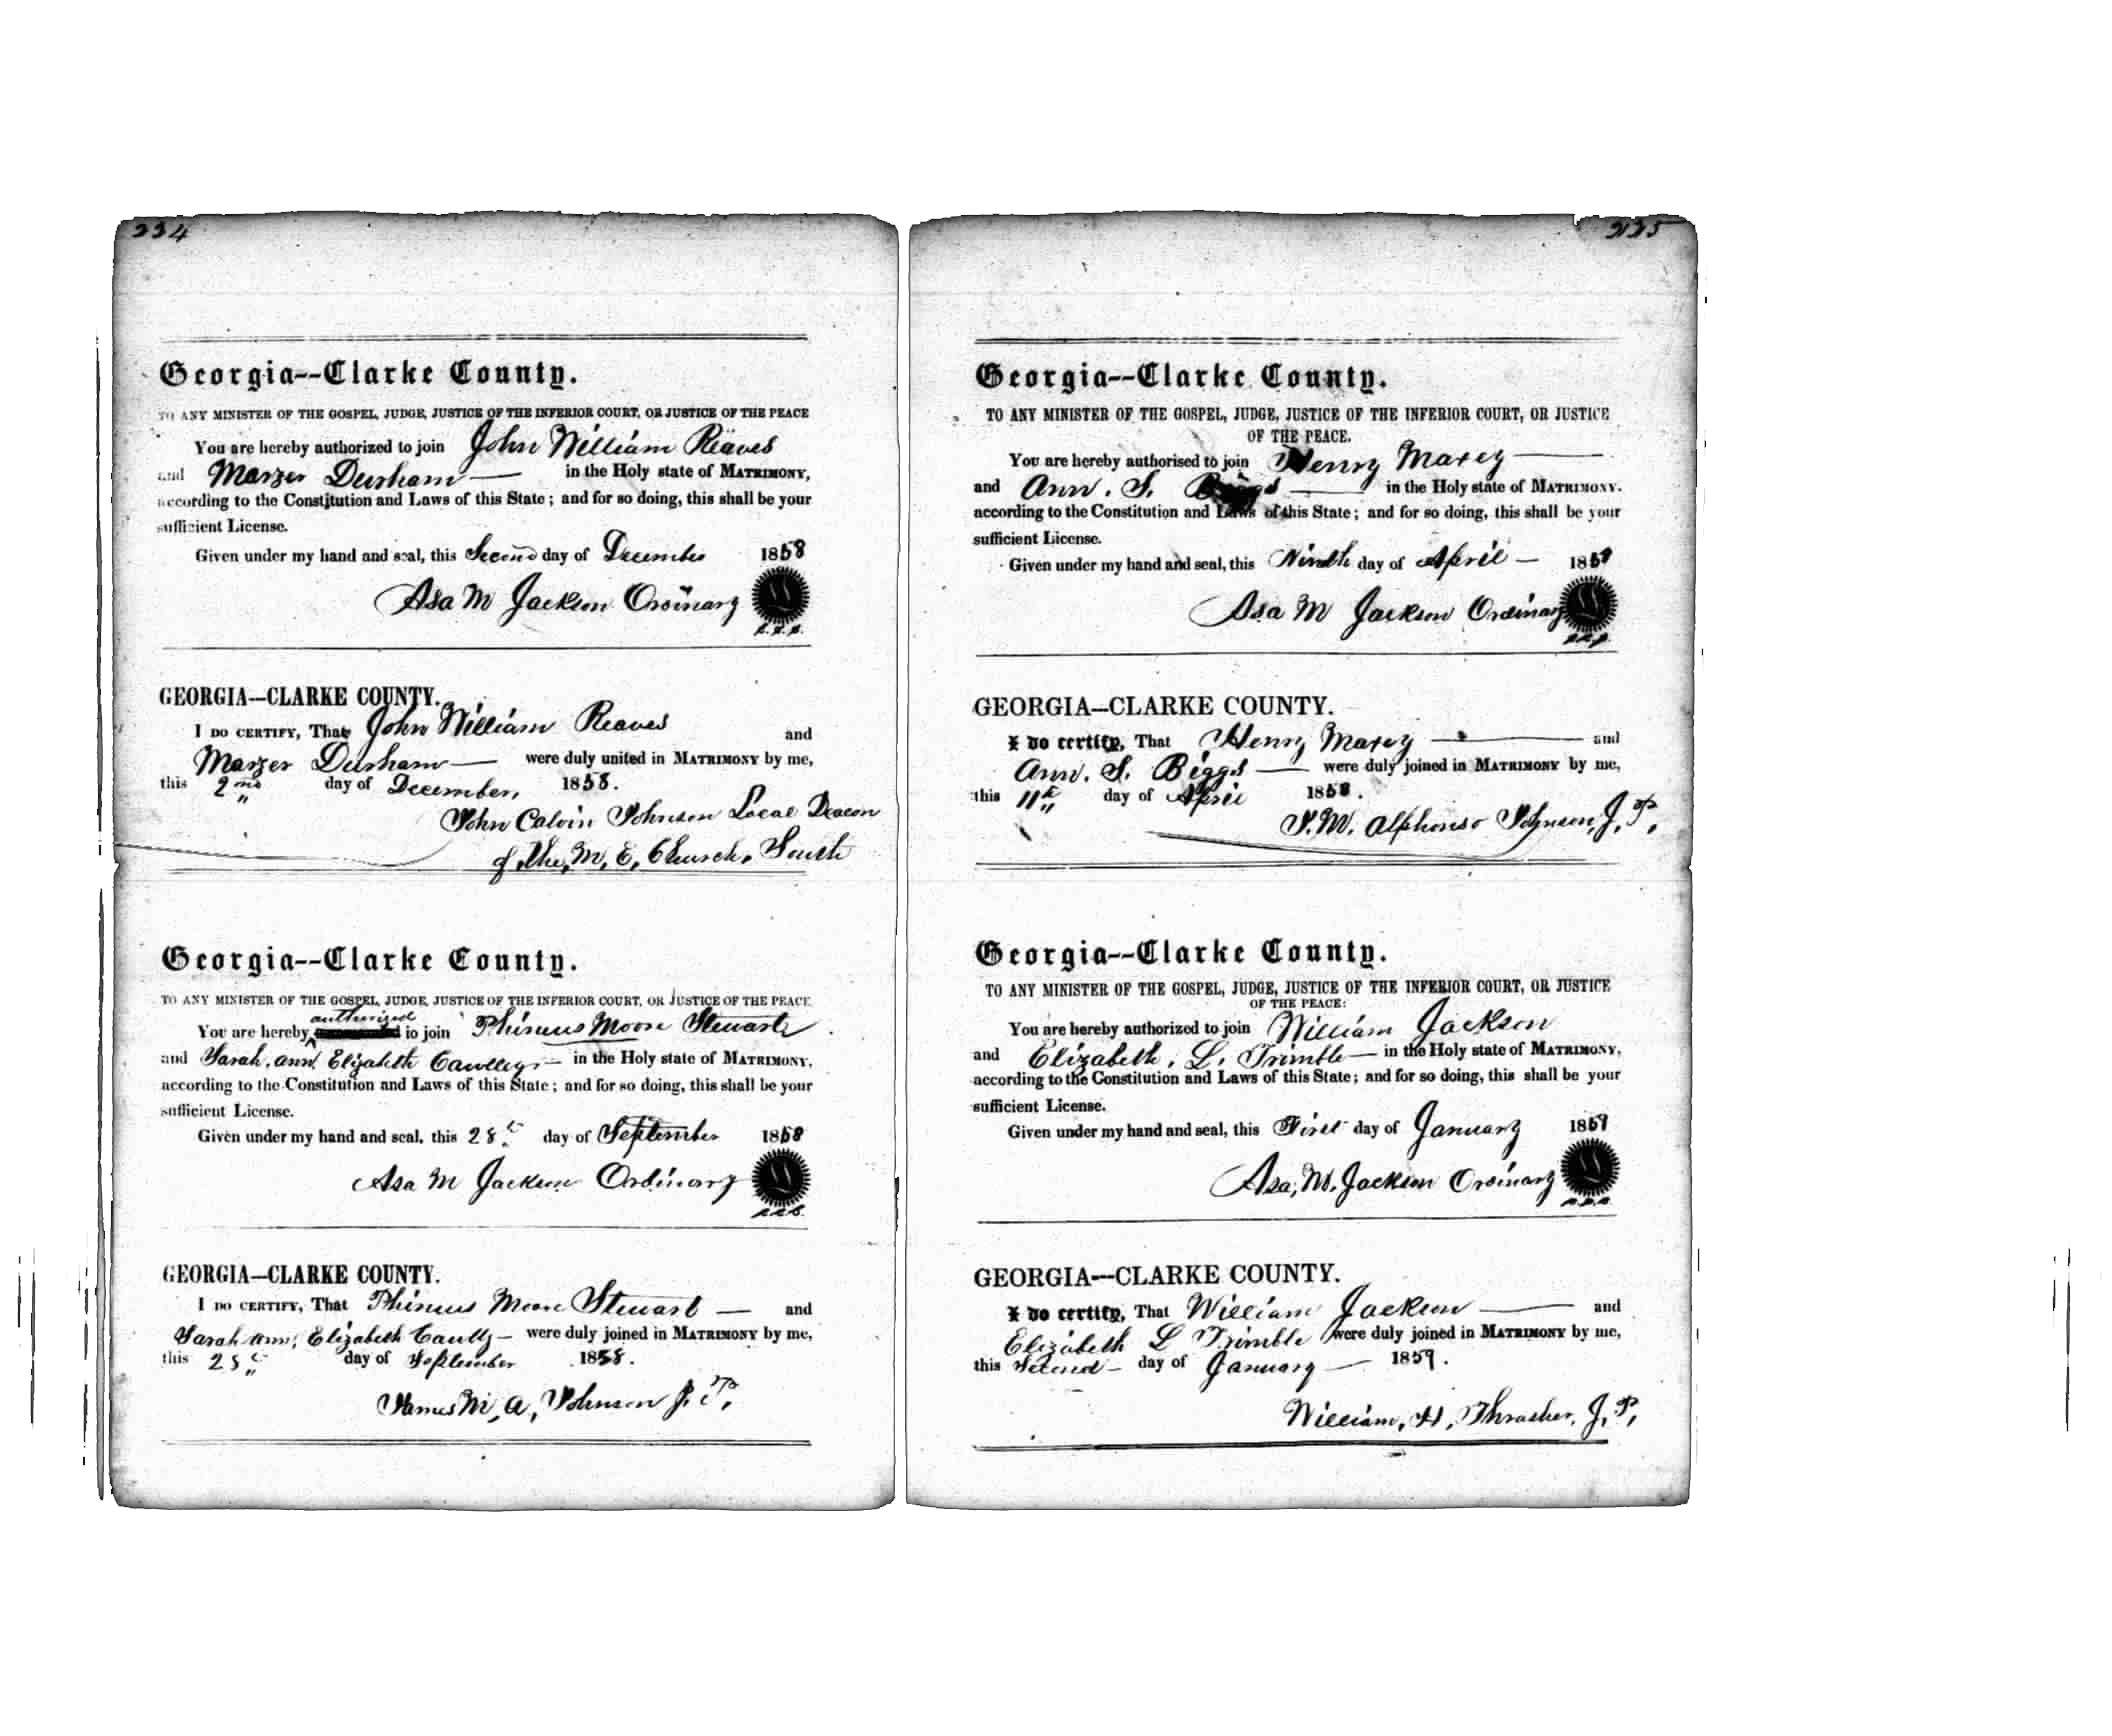 234
Georgia--Clarke County.
TO ANY MINISTER OF THE GOSPEL, JUDGE, JUSTICE OF THE INFERIOR COURT, OR JUSTICE OF THE PEACE
You are hereby authorized to join John William Reaves
and Marzer Durham in the Holy state of MATRIMONY,
according to the Constitution and Laws of this State; and for so doing, this shall be your
sufficient License.
Given under my hand and seal, this Second day of December 1858
Asa M Jackson Ordinary
L.S.
GEORGIA—CLARKE COUNTY.
I DO CERTIFY, That John William Reaves and
Marzer Durham— were duly united in MATRIMONY by me,
this 2nd day of December, 1858.
John Calvin Johnson Local Deacon
of the, M, E, Church, South
Georgia--Clarke County.
TO ANY MINISTER OF THE GOSPEL, JUDGE, JUSTICE OF THE INFERIOR COURT, OR JUSTICE OF THE PEACE
authorized
You are hereby to join Moore Stewart
and Sarah, ann, Elizabeth — in the Holy state of MATRIMONY,
according to the Constitution and Laws of this State; and for so doing, this shall be your
sufficient License.
Given under my hand and seal, this 28t day of September 1858
Asa M Jackson Ordinary
GEORGIA—CLARKE COUNTY.
I DO CERTIFY, That Moore Stewart — and
Sarah ann, Elizabeth — were duly joined in MATRIMONY by me,
this 28t day of September 1858.
James M, A, Johnson J. P,
225
Georgia--Clarke County.
TO ANY MINISTER OF THE GOSPEL, JUDGE, JUSTICE OF THE INFERIOR COURT, OR JUSTICE
OF THE PEACE.
You are hereby authorised to join Henry Maxey —
and Ann. S. Biggs — in the Holy state of MATRIMONY.
according to the Constitution and Laws of this State; and for so doing, this shall be your
sufficient License.
Given under my hand and seal, this Ninth day of April — 1859
Asa M Jackson Ordinary
GEORGIA—CLARKE COUNTY.
I do certify, That Henry Maxey — and
Ann. S. Biggs — were duly joined in MATRIMONY by me,
this 11th day of April 1858.
J. M. Alphonso Johnson, J. P,
Georgia--Clarke County.
TO ANY MINISTER OF THE GOSPEL, JUDGE, JUSTICE OF THE INFERIOR COURT, OR JUSTICE
OF THE PEACE:
You are hereby authorized to join William Jackson
and Elizabeth, L, Trimble— in the Holy state of MATRIMONY,
according to the Constitution and Laws of this State; and for so doing, this shall be your
sufficient License.
Given under my hand and seal, this First day of January 1859
Asa, M, Jackson Ordinary
GEORGIA—CLARKE COUNTY.
I do certify, That William Jackson — and
Elizabeth L Trimble were duly joined in MATRIMONY by me,
this Second— day of January — 1859.
William, H, Thrasher, J, P,